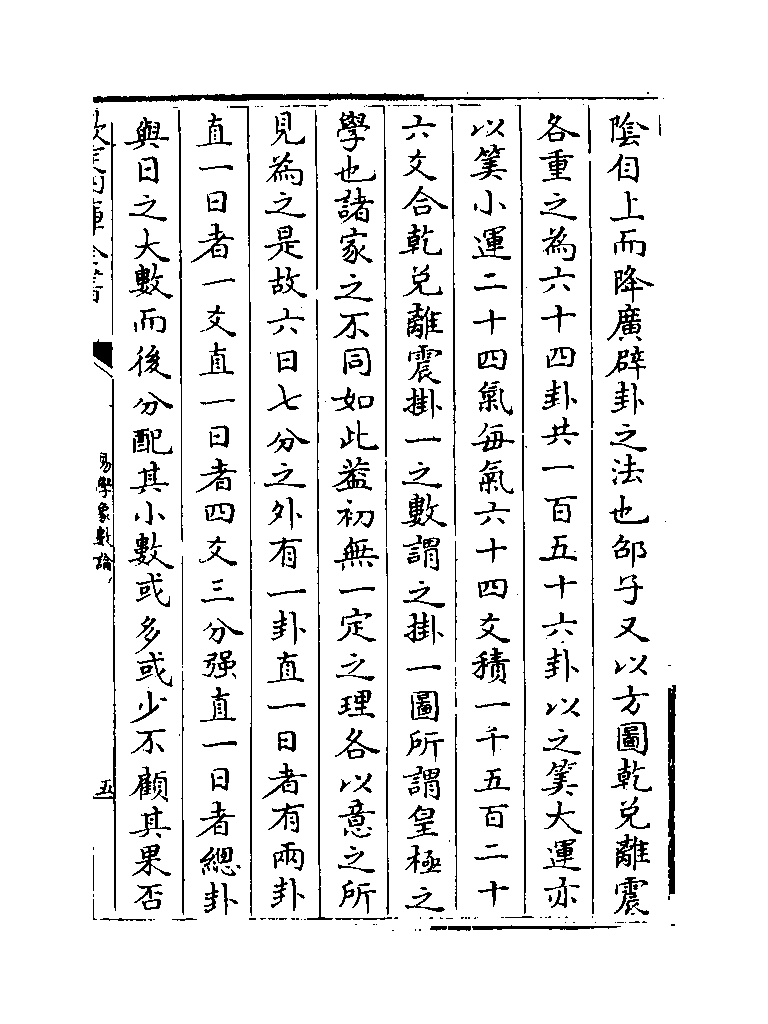 陰自上而降廣辟卦之法也邵子又以方圖乾兌離震
各重之為六十四卦共一百五十六卦以之筭大運亦
以筭小運二十四氣每氣六十四爻積一千五百二十
六爻合乾兌離震掛一之數謂之掛一圖所謂皇極之
學也諸家之不同如此葢初無一定之理各以意之所
見為之是故六日七分之外有一卦直一日者有兩卦
直一日者一爻直一日者四爻三分强直一日者總卦
與日之大數而後分配其小數或多或少不顧其果否
欽定四庫全書
易學象數論
五